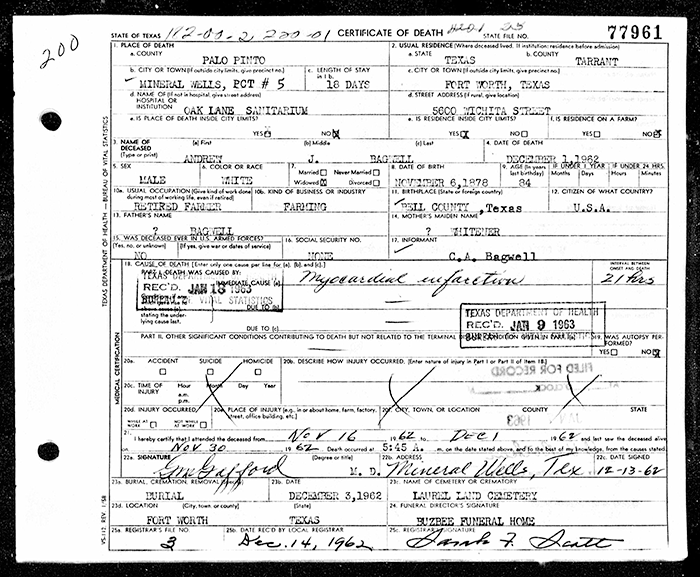 200
STATE OF TEXAS CERTIFICATE OF DEATH STATE FILE NO. 77961
1. PLACE OF DEATH
2. USUAL RESIDENCE (Where deceased lived. If institution: residence before admission)
a. COUNTY PALO PINTO
a. STATE TEXAS b. COUNTY TARRANT
b. CITY OR TOWN (If outside city limits, give precinct no.) MINERAL WELLS, PCT # 5
c. LENGTH OF STAY in 1 b. 18 DAYS
c. CITY OR TOWN (If outside city limits, give precinct no.) FORT WORTH, TEXAS
d. NAME OF (If not in hospital, give street address) HOSPITAL OR INSTITUTION OAK LANE SANITARIUM
d. STREET ADDRESS (If rural, give location) 5600 WICHITA STREET
e. IS PLACE OF DEATH INSIDE CITY LIMITS? YES NO
e. IS RESIDENCE INSIDE CITY LIMITS? YES X NO
f. IS RESIDENCE ON A FARM? YES NO X
3. NAME OF DECEASED (Type or print) (a) First ANDREW (b) Middle J. (c) Last BAGWELL
4. DATE OF DEATH DECEMBER 1,1962
5. SEX MALE
6. COLOR OR RACE WHITE
7. Married Never Married Widowed X Divorced
8. DATE OF BIRTH NOVEMBER 6,1878
9. AGE (In years last birthday) 84
IF UNDER 1 YEAR Months Days
IF UNDER 24 HRS. Hours Min.
10a. USUAL OCCUPATION (Give kind of work done during most of working life, even if retired) RETIRED FARMER
10b. KIND OF BUSINESS OR INDUSTRY FARMING
11. BIRTHPLACE (State or foreign country) BELL COUNTY ,Texas
12. CITIZEN OF WHAT COUNTRY? U.S.A.
13. FATHER'S NAME ? BAGWELL
14. MOTHER'S MAIDEN NAME ? WHITENER
15. WAS DECEASED EVER IN U.S. ARMED FORCES? (Yes, no, or unknown) (If yes, give war or dates of service) NO
16. SOCIAL SECURITY NO. NONE
17. INFORMANT C.A. Bagwell
18. CAUSE OF DEATH [Enter only one cause per line for (a), (b), and (c).]
INTERVAL BETWEEN ONSET AND DEATH
PART I. DEATH WAS CAUSED BY:
IMMEDIATE CAUSE (a) Myocardial infarction 21 hrs
TEXAS DEPARTMENT
REC'D. JAN 18 1963
BUREAU OF VITAL STATISTICS
above cause (a), stating the underlying cause last.
DUE TO (b)
DUE TO (c)
TEXAS DEPARTMENT OF HEALTH
REC'D. JAN 9 1963
BUREAU OF VITAL STATISTICS
PART II. OTHER SIGNIFICANT CONDITIONS CONTRIBUTING TO DEATH BUT NOT RELATED TO THE TERMINAL
19. WAS AUTOPSY PERFORMED? YES NO X
20a. ACCIDENT SUICIDE HOMICIDE
20b. DESCRIBE HOW INJURY OCCURRED. (Enter nature of injury in Part I or Part II of item 18.)
FILED FOR RECORD
O'CLOCK
1963
20c. TIME OF INJURY Hour a.m. p.m. Month Day Year
20d. INJURY OCCURRED WHILE AT WORK NOT WHILE AT WORK
20e. PLACE OF INJURY (e.g., in or about home, farm, factory, street, office building, etc.)
20f. CITY, TOWN, OR LOCATION COUNTY STATE
21. I hereby certify that I attended the deceased from Nov 16 1962 to Dec 1 1962 and last saw the deceased alive
on Nov 30 1962 Death occurred at 5:45 A. m. on the date stated above; and to the best of my knowledge, from the causes stated.
22a. SIGNATURE (Degree or title) M. D.
22b. ADDRESS Mineral Wells, Tex
22c. DATE SIGNED 12-13-62
23a. BURIAL, CREMATION, REMOVAL (Specify) BURIAL
23b. DATE DECEMBER 3,1962
23c. NAME OF CEMETERY OR CREMATORY LAUREL LAND CEMETERY
23d. LOCATION (City, town, or county) FORT WORTH (State) TEXAS
24. FUNERAL DIRECTOR'S SIGNATURE BUZBEE FUNERAL HOME
25a. REGISTRAR'S FILE NO. 3
25b. DATE REC'D BY LOCAL REGISTRAR Dec. 14, 1962
25c. REGISTRAR'S SIGNATURE Sarah F. Scott
TEXAS DEPARTMENT OF HEALTH — BUREAU OF VITAL STATISTICS
MEDICAL CERTIFICATION
VS-112 REV. 1/58